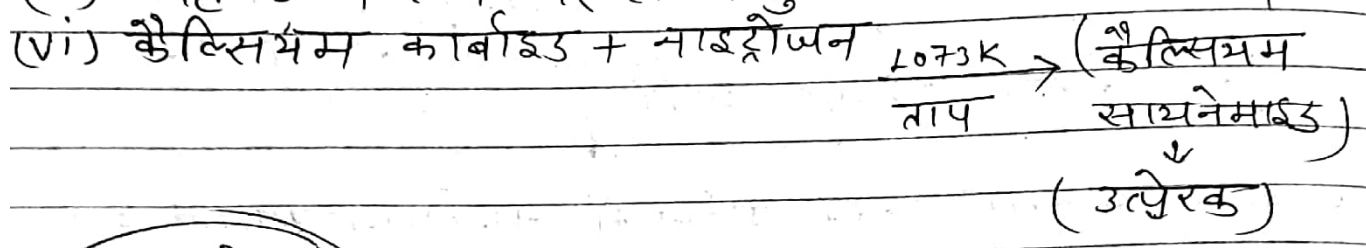 (vi) कैल्सियम कार्बाइड + नाइट्रोजन 1073K → (कैल्सियम
ताप सायनेमाइड)
↓
(उत्प्रेरक)